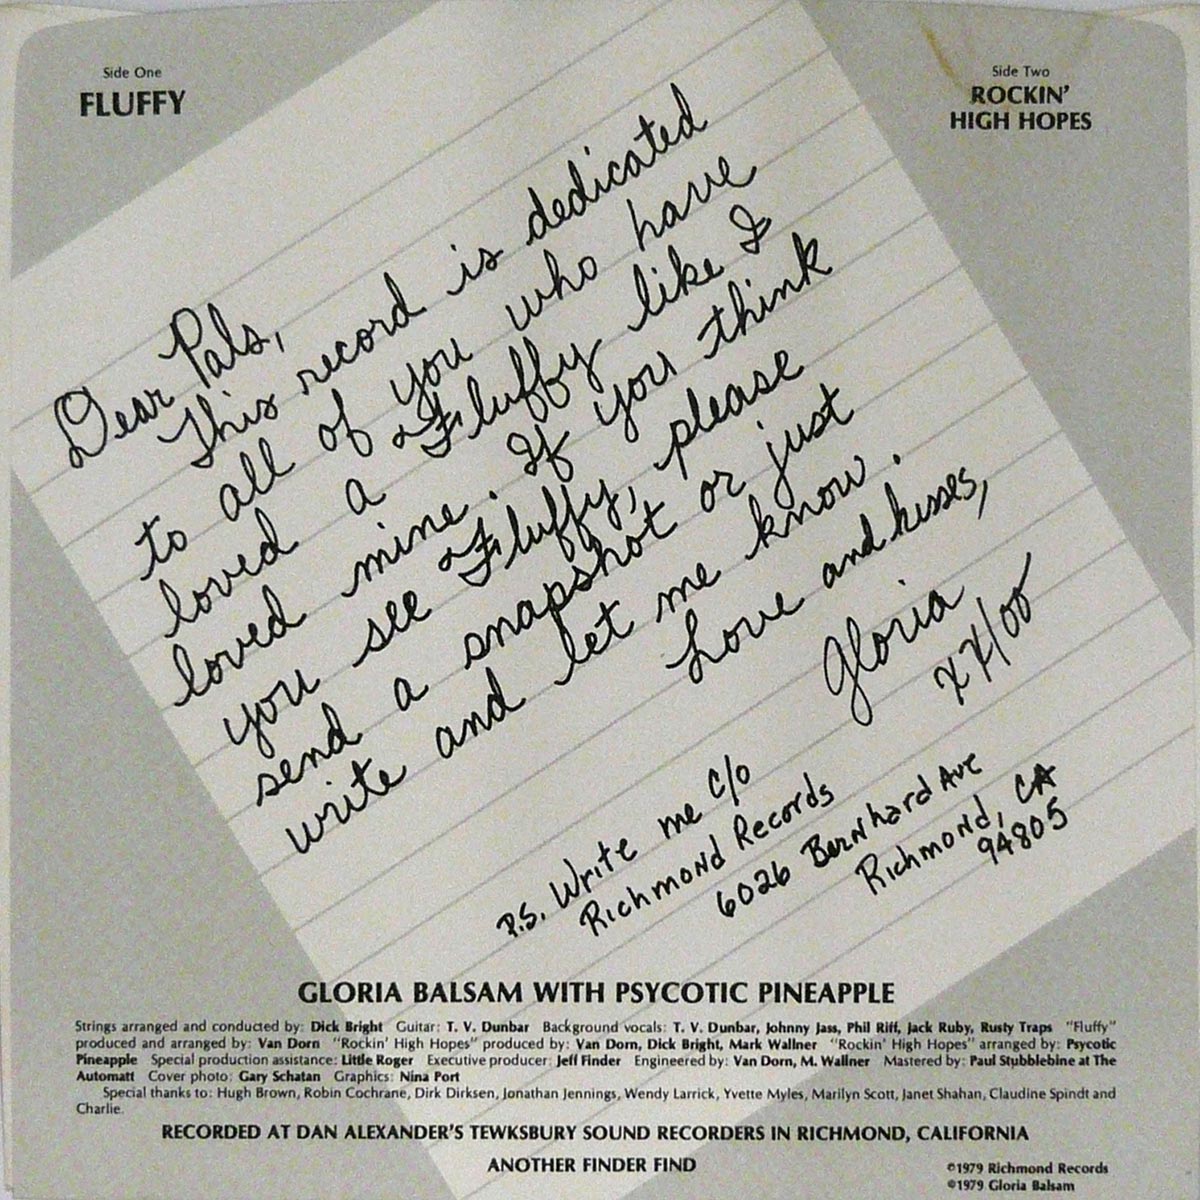 Side One
FLUFFY
Side Two
ROCKIN'
HIGH HOPES
Dear Pals,
This record is dedicated
to all of you who have
loved a Fluffy like I
loved mine. If you think
you see Fluffy, please
send a snapshot or just
write and let me know.
Love and kisses,
Gloria
XX/OO
P.S. Write me c/o
Richmond Records
6026 Bernhard Ave
Richmond, CA
94805
GLORIA BALSAM WITH PSYCOTIC PINEAPPLE
Strings arranged and conducted by: Dick Bright Guitar: T. V. Dunbar Background vocals: T. V. Dunbar, Johnny Jass, Phil Riff, Jack Ruby, Rusty Traps "Fluffy"
produced and arranged by: Van Dorn "Rockin' High Hopes" produced by: Van Dorn, Dick Bright, Mark Wallner "Rockin' High Hopes" arranged by: Psycotic
Pineapple Special production assistance: Little Roger Executive producer: Jeff Finder Engineered by: Van Dorn, M. Wallner Mastered by: Paul Stubblebine at The
Automatt Cover photo: Gary Schatan Graphics: Nina Port
Special thanks to: Hugh Brown, Robin Cochrane, Dirk Dirksen, Jonathan Jennings, Wendy Larrick, Yvette Myles, Marilyn Scott, Janet Shahan, Claudine Spindt and
Charlie.
RECORDED AT DAN ALEXANDER'S TEWKSBURY SOUND RECORDERS IN RICHMOND, CALIFORNIA
ANOTHER FINDER FIND
©1979 Richmond Records
©1979 Gloria Balsam